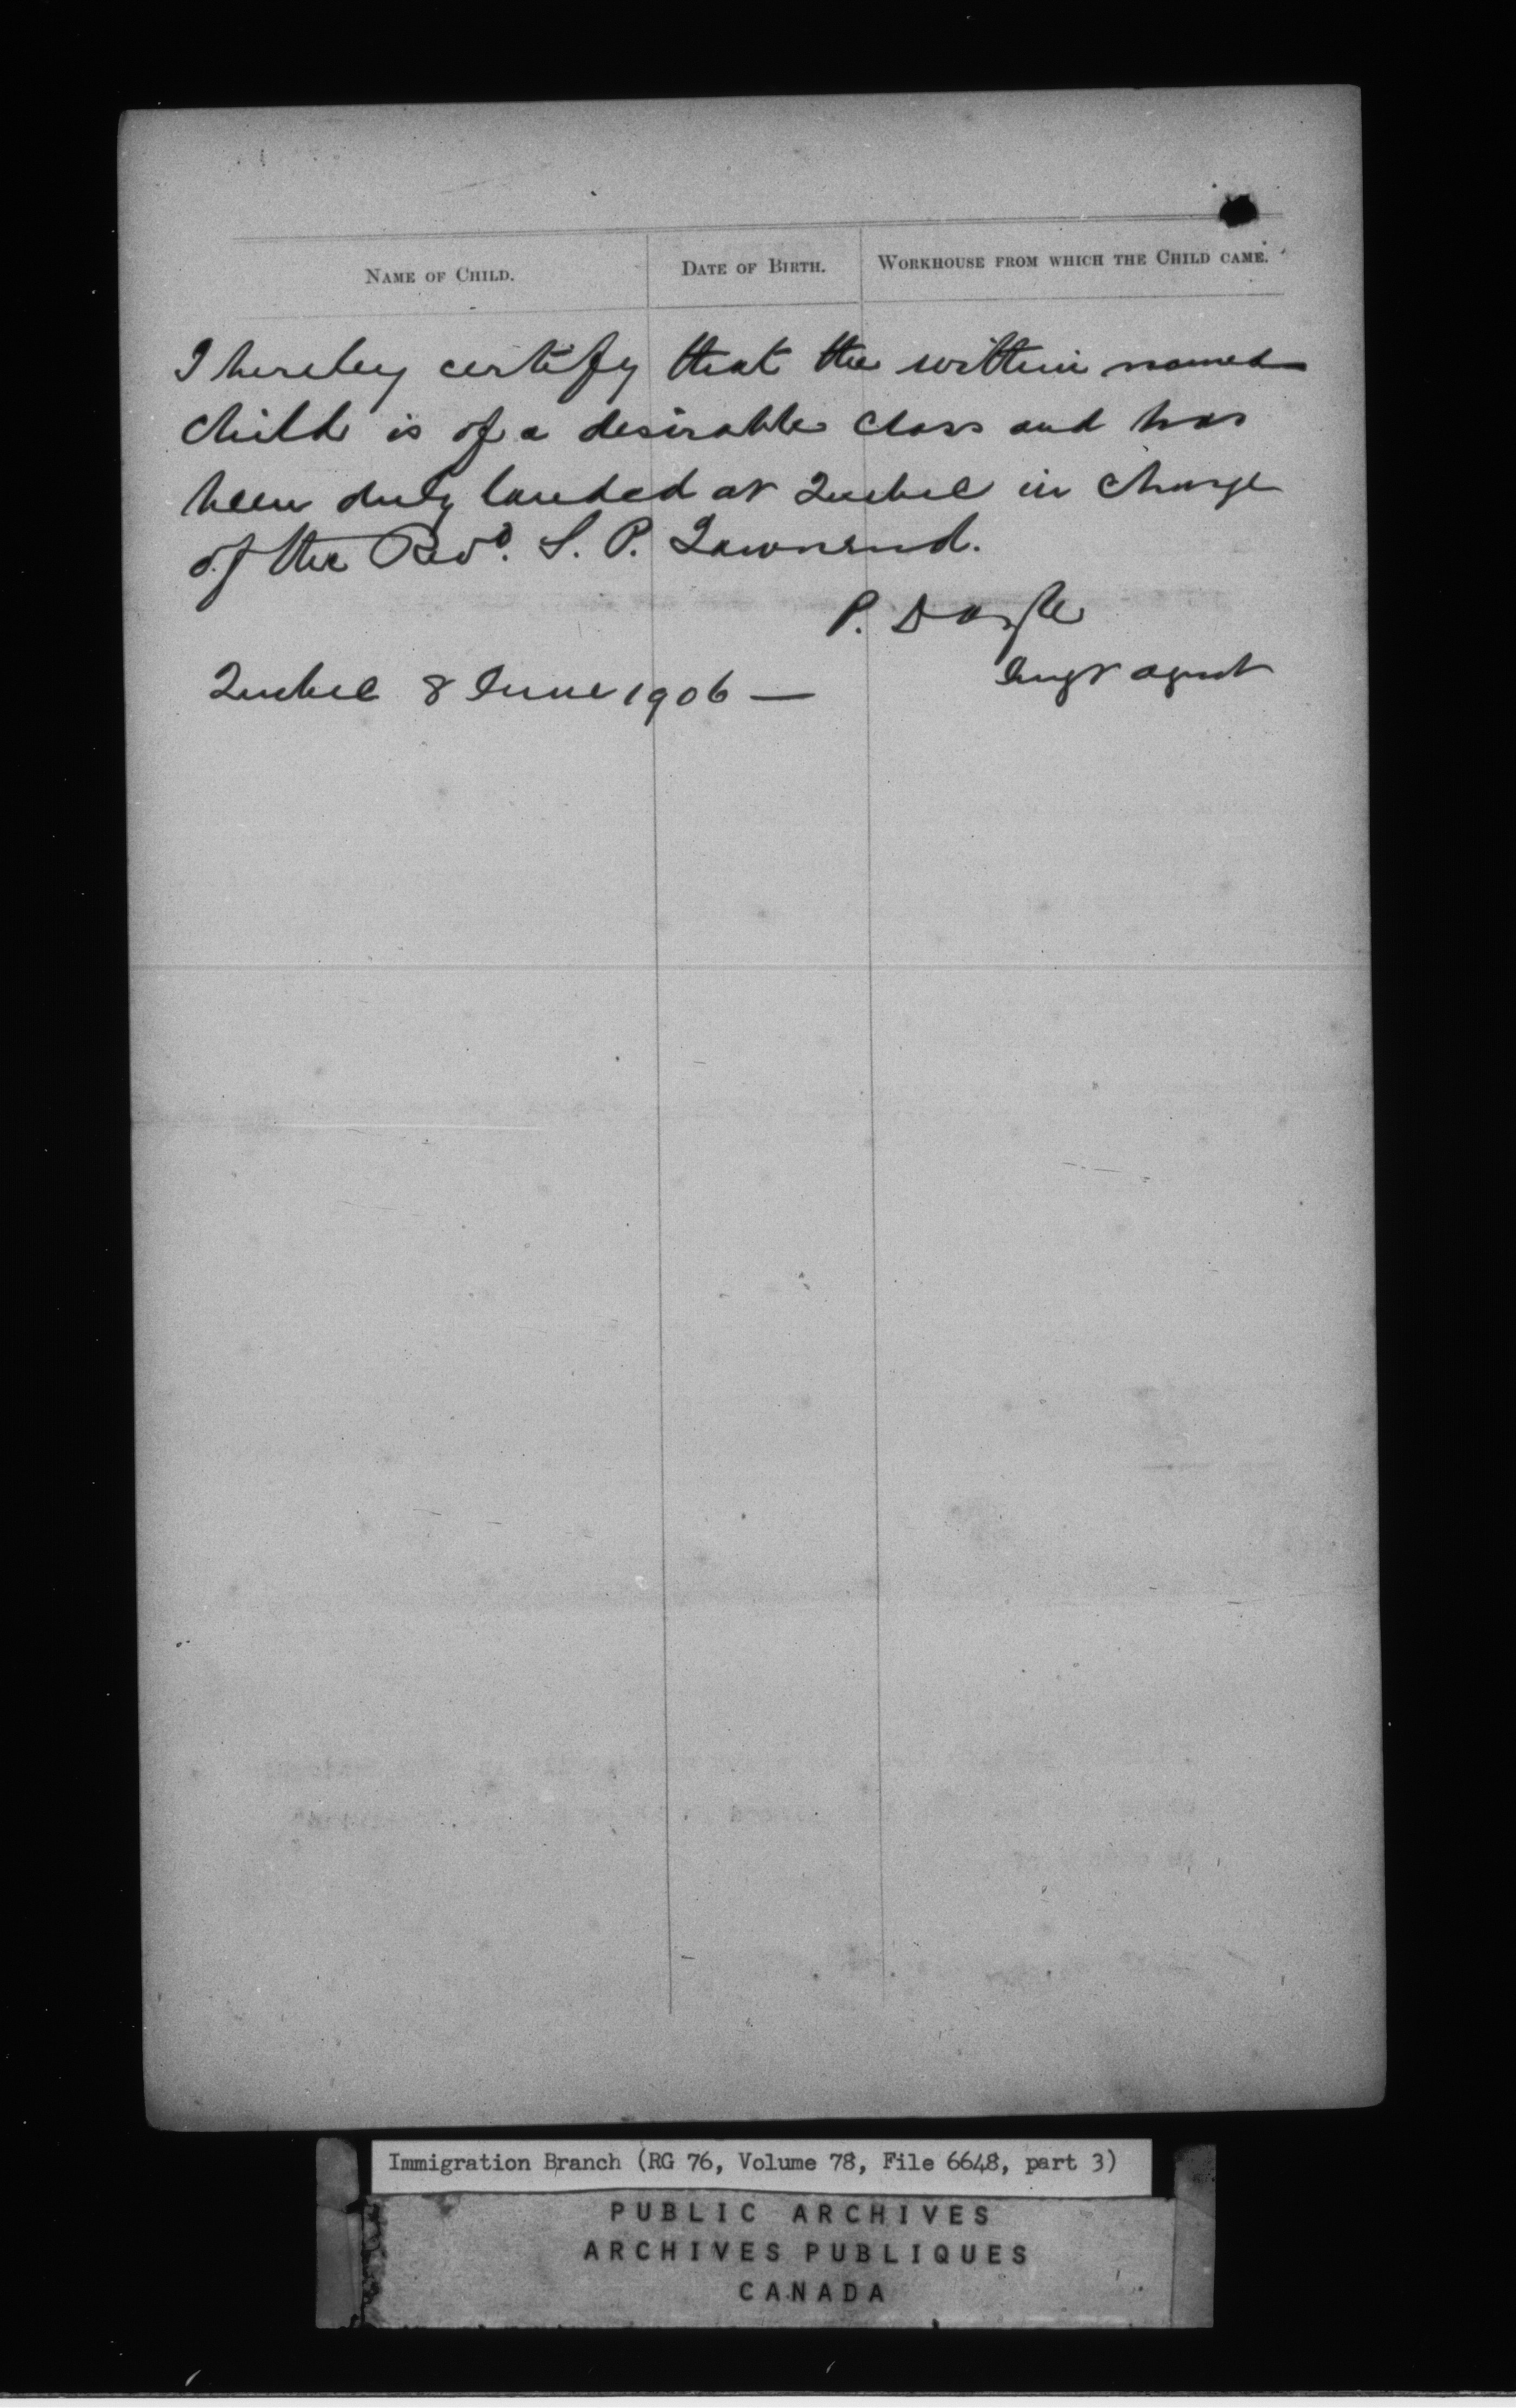 NAME OF CHILD. DATE OF BIRTH. WORKHOUSE FROM WHICH THE CHILD CAME.
I hereby certify that the within named
child is of a desirable class and has
been duly landed at Quebec in charge
of the Revd. S. P. Townsend.
P. Doyle
Immgr agent
Quebec 8 June 1906 —
Immigration Branch (RG 76, Volume 78, File 6648, part 3)
PUBLIC ARCHIVES
ARCHIVES PUBLIQUES
CANADA